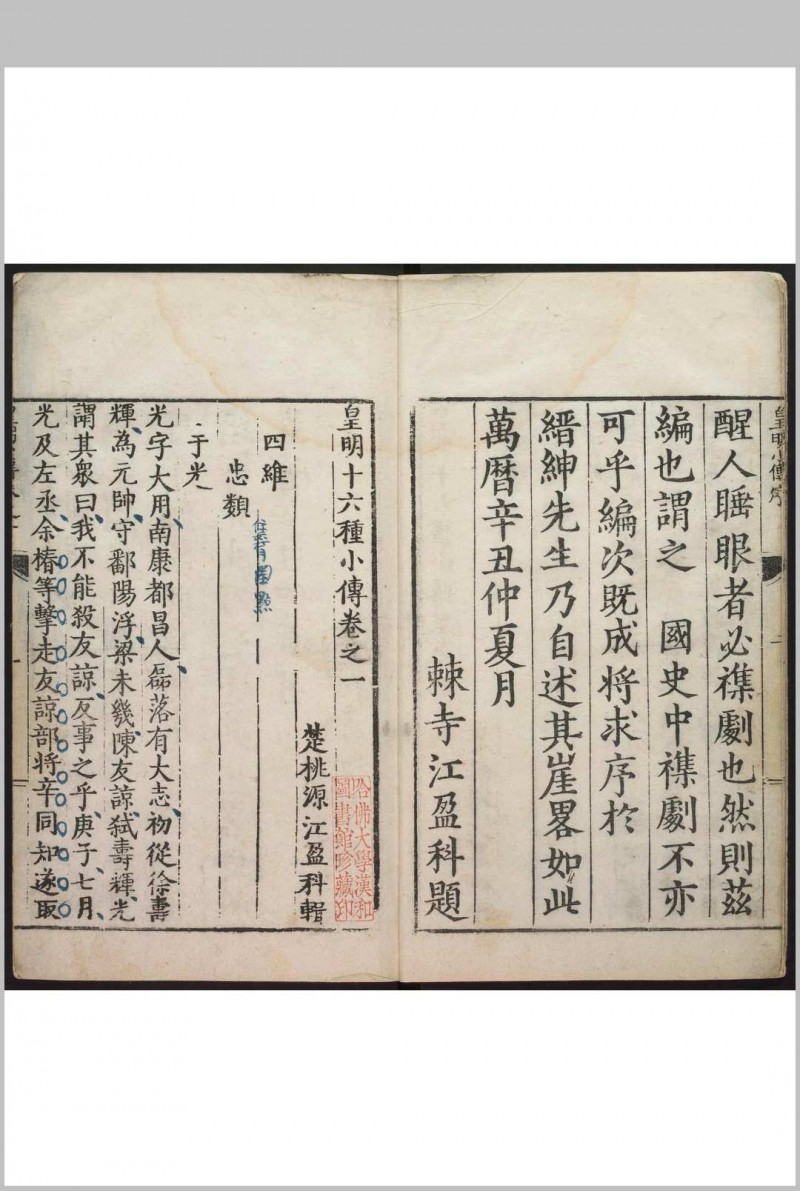 皇明小傳序
醒人睡眼者必襍劇也然則茲
編也謂之　國史中襍劇不亦
可乎編次既成將求序於
縉紳先生乃自述其崖畧如此
萬曆辛丑仲夏月
棘寺江盈科題
皇明十六種小傳卷之一
哈佛大學漢和
圖書館珍藏印
楚桃源江盈科輯
四維
忠類
于光
光字大用南康都昌人磊落有大志初從徐壽
輝為元帥守鄱陽浮梁未幾陳友諒弒壽輝光
謂其衆曰我不能殺友諒反事之乎庚子七月
光及左丞余椿等擊走友諒部將辛同知遂取